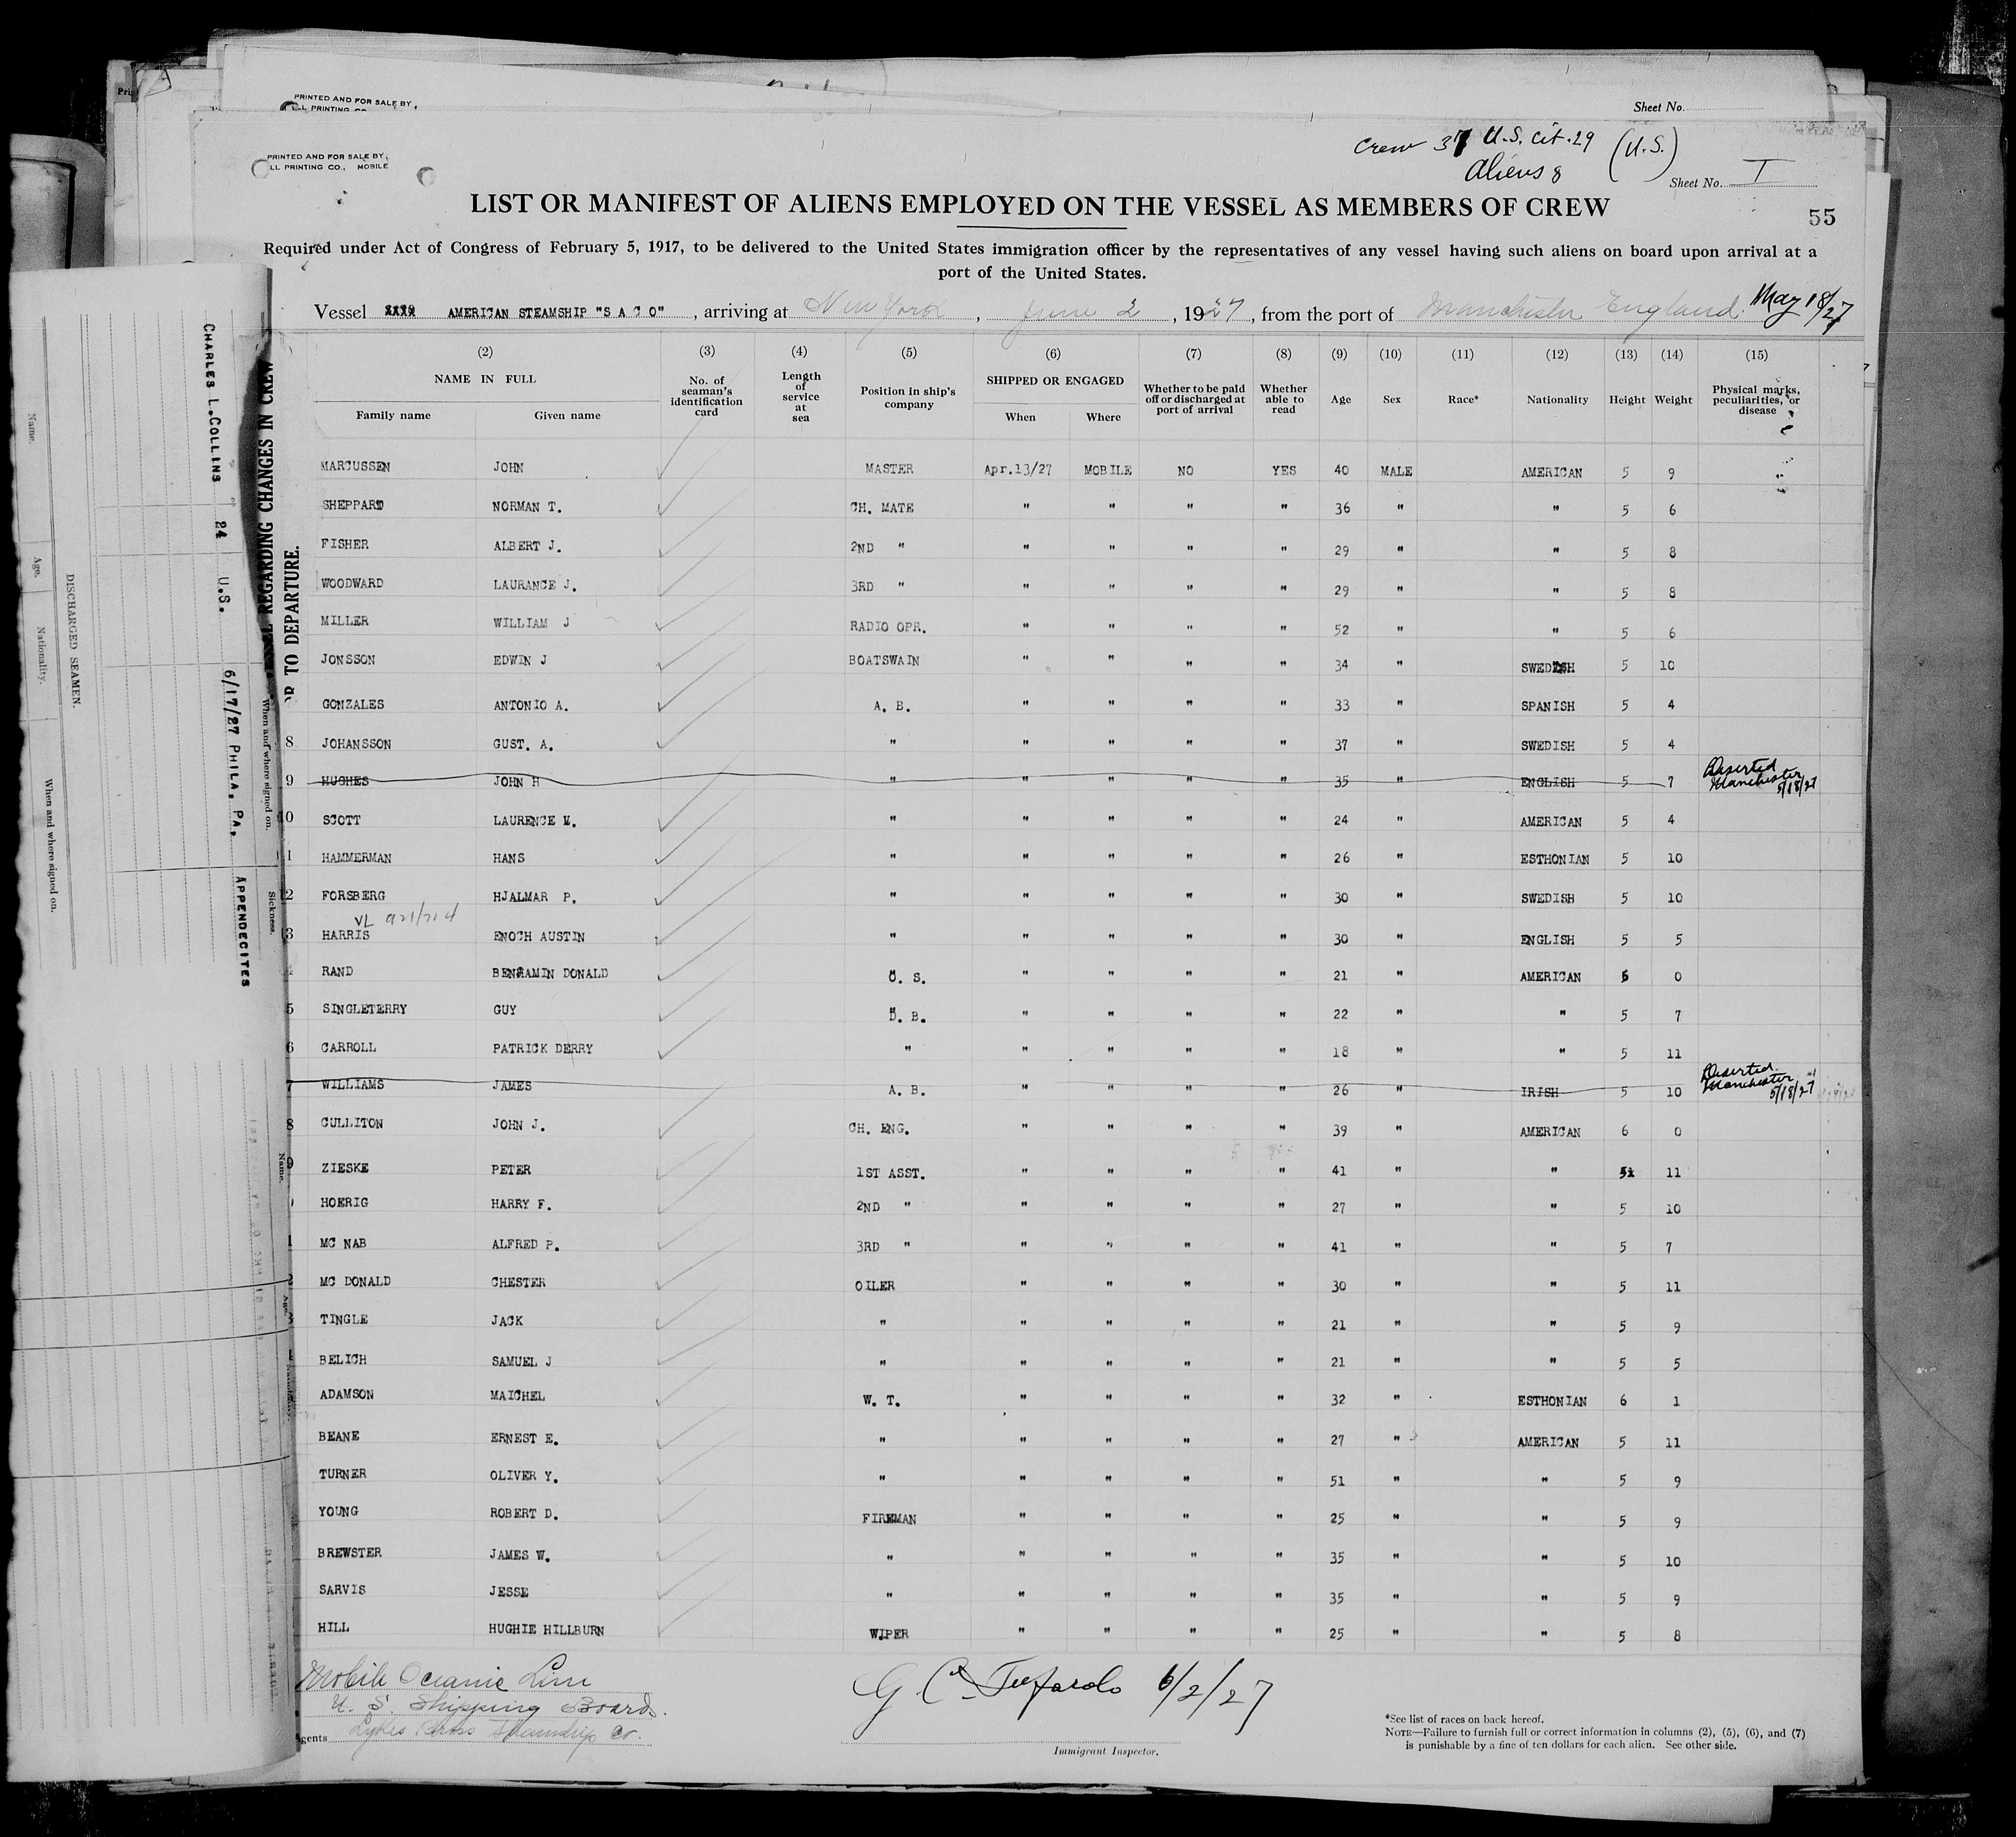 PRINTED AND FOR SALE BY
LL PRINTING CO.
Sheet No.
PRINTED AND FOR SALE BY
LL PRINTING CO., MOBILE
Crew 37 U.S. Cit. 29 (U.S.)
Aliens 8
Sheet No. I
LIST OR MANIFEST OF ALIENS EMPLOYED ON THE VESSEL AS MEMBERS OF CREW
55
Required under Act of Congress of February 5, 1917, to be delivered to the United States immigration officer by the representatives of any vessel having such aliens on board upon arrival at a
port of the United States.
Vessel AMERICAN STEAMSHIP "S A C O", arriving at New York, June 2, 1927, from the port of Manchester England. May 18/27
(2) (3) (4) (5) (6) (7) (8) (9) (10) (11) (12) (13) (14) (15)
NAME IN FULL
Family name Given name
No. of seaman's identification card
Length of service at sea
Position in ship's company
SHIPPED OR ENGAGED
When Where
Whether to be paid off or discharged at port of arrival
Whether able to read
Age Sex Race* Nationality Height Weight
Physical marks, peculiarities, or disease
MARCUSSEN JOHN MASTER Apr.13/27 MOBILE NO YES 40 MALE AMERICAN 5 9
SHEPPARD NORMAN T. CH. MATE " " " " 36 " " 5 6
FISHER ALBERT J. 2ND " " " " " 29 " " 5 8
WOODWARD LAURANCE J. 3RD " " " " " 29 " " 5 8
MILLER WILLIAM J RADIO OPR. " " " " 52 " " 5 6
JONSSON EDWIN J BOATSWAIN " " " " 34 " SWEDISH 5 10
GONZALES ANTONIO A. A. B. " " " " 33 " SPANISH 5 4
8 JOHANSSON GUST. A. " " " " " 37 " SWEDISH 5 4
9 HUGHES JOHN H " " " " " 35 " ENGLISH 5 7 Deserted Manchester 5/18/27
10 SCOTT LAURENCE M. " " " " " 24 " AMERICAN 5 4
1 HAMMERMAN HANS " " " " " 26 " ESTHONIAN 5 10
12 FORSBERG HJALMAR P. " " " " " 30 " SWEDISH 5 10
VL 921/714
13 HARRIS ENOCH AUSTIN " " " " " 30 " ENGLISH 5 5
4 RAND BENJAMIN DONALD O. S. " " " " 21 " AMERICAN 6 0
5 SINGLETERRY GUY D. B. " " " " 22 " " 5 7
6 CARROLL PATRICK DERRY " " " " " 18 " " 5 11
7 WILLIAMS JAMES A. B. " " " " 26 " IRISH 5 10 Deserted Manchester 5/18/27
8 CULLITON JOHN J. CH. ENG. " " " " 39 " AMERICAN 6 0
9 ZIESKE PETER 1ST ASST. " " " " 41 " " 5 11
HOERIG HARRY F. 2ND " " " " " 27 " " 5 10
1 MC NAB ALFRED P. 3RD " " " " " 41 " " 5 7
2 MC DONALD CHESTER OILER " " " " 30 " " 5 11
TINGLE JACK " " " " " 21 " " 5 9
BELICH SAMUEL J " " " " " 21 " " 5 5
ADAMSON MAICHEL W. T. " " " " 32 " ESTHONIAN 6 1
BEANE ERNEST E. " " " " " 27 " AMERICAN 5 11
TURNER OLIVER Y. " " " " " 51 " " 5 9
YOUNG ROBERT D. FIREMAN " " " " 25 " " 5 9
BREWSTER JAMES W. " " " " " 35 " " 5 10
SARVIS JESSE " " " " " 35 " " 5 9
HILL HUGHIE HILLBURN WIPER " " " " 25 " " 5 8
Mobile Oceanic Line
U. S. Shipping Board.
gents Lykes Bros Steamship Co.
6/2/27
Immigrant Inspector.
*See list of races on back hereof.
NOTE—Failure to furnish full or correct information in columns (2), (5), (6), and (7)
is punishable by a fine of ten dollars for each alien. See other side.
REGARDING CHANGES IN CREW
TO DEPARTURE.
CHARLES L. COLLINS 24 U.S. 6/17/27 PHILA, PA, APPENDECITES
DISCHARGED SEAMEN.
Name. Age. Nationality. When and where signed on.
When and where signed on. Sickness.
Name. Age.